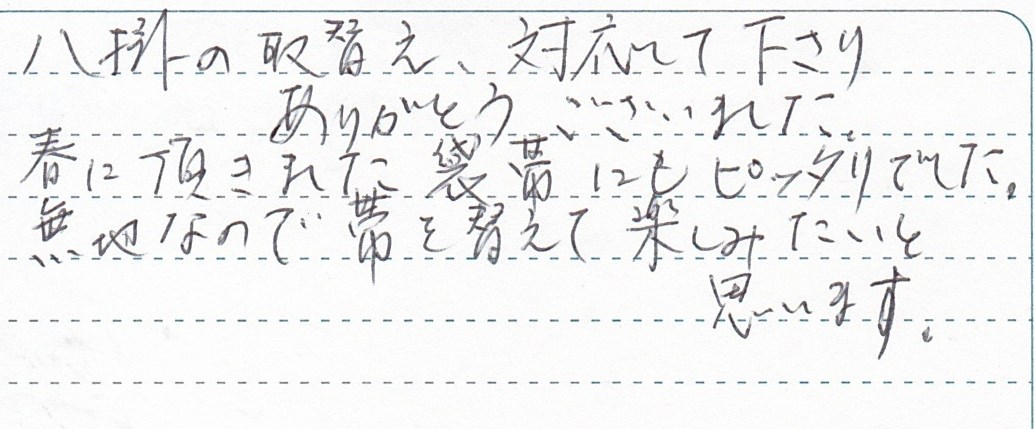 八掛の取替え、対応して下さり
ありがとうございました。
春に頂きました袋帯にもピッタリでした。
無地なので帯を替えて楽しみたいと
思います。